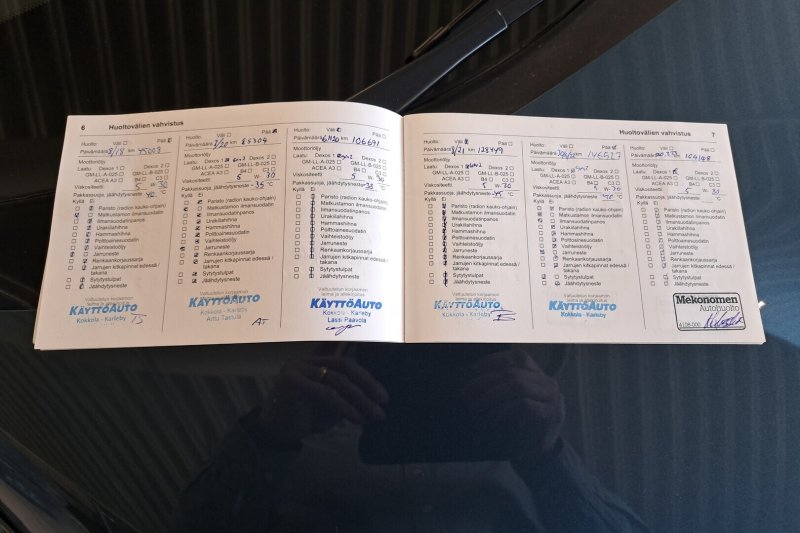 6 Huoltovälien vahvistus
Huolto: Väli Pää
Päivämäärä 8/18 km 45008
Moottoriöljy
Laatu: Dexos 1 Dexos 2
GM-LL-A-025 GM-LL-B-025
ACEA A3 B4 C3
Viskositeetti 5 W- 30
Pakkassuoja, jäähdytysneste - 40 °C
Kyllä Ei
Paristo (radion kauko-ohjain)
Matkustamon ilmansuodatin
Ilmansuodatinpanos
Urakilahihna
Hammashihna
Polttoainesuodatin
Vaihteistoöljy
Jarruneste
Renkaankorjaussarja
Jarrujen kitkapinnat edessä /
takana
Sytytystulpat
Jäähdytysneste
Valtuutetun korjaamon
leima ja allekirjoitus
KÄYTTÖAUTO
Kokkola - Karleby
Huolto: Väli Pää
Päivämäärä 2/20 km 85304
Moottoriöljy
Laatu: Dexos 1 Dexos 2
GM-LL-A-025 GM-LL-B-025
ACEA A3 B4 C3
Viskositeetti 5 W- 30
Pakkassuoja, jäähdytysneste - 35 °C
Kyllä Ei
Paristo (radion kauko-ohjain)
Matkustamon ilmansuodatin
Ilmansuodatinpanos
Urakilahihna
Hammashihna
Polttoainesuodatin
Vaihteistoöljy
Jarruneste
Renkaankorjaussarja
Jarrujen kitkapinnat edessä /
takana
Sytytystulpat
Jäähdytysneste
Valtuutetun korjaamon
leima ja allekirjoitus
KÄYTTÖAUTO
Kokkola - Karleby
Arttu Tastula
AT
Huolto: Väli Pää
Päivämäärä km 106691
Moottoriöljy
Laatu: Dexos 1 Dexos 2
GM-LL-A-025 GM-LL-B-025
ACEA A3 B4 C3
Viskositeetti 5 W- 30
Pakkassuoja, jäähdytysneste - 38 °C
Kyllä Ei
Paristo (radion kauko-ohjain)
Matkustamon ilmansuodatin
Ilmansuodatinpanos
Urakilahihna
Hammashihna
Polttoainesuodatin
Vaihteistoöljy
Jarruneste
Renkaankorjaussarja
Jarrujen kitkapinnat edessä /
takana
Sytytystulpat
Jäähdytysneste
Valtuutetun korjaamon
leima ja allekirjoitus
KÄYTTÖAUTO
Kokkola - Karleby
Lassi Paavola
Huoltovälien vahvistus 7
Huolto: Väli Pää
Päivämäärä 8/21 km 128449
Moottoriöljy
Laatu: Dexos 1 Dexos 2
GM-LL-A-025 GM-LL-B-025
ACEA A3 B4 C3
Viskositeetti 5 W- 30
Pakkassuoja, jäähdytysneste °C
Kyllä Ei
Paristo (radion kauko-ohjain)
Matkustamon ilmansuodatin
Ilmansuodatinpanos
Urakilahihna
Hammashihna
Polttoainesuodatin
Vaihteistoöljy
Jarruneste
Renkaankorjaussarja
Jarrujen kitkapinnat edessä /
takana
Sytytystulpat
Jäähdytysneste
Valtuutetun korjaamon
leima ja allekirjoitus
KÄYTTÖAUTO
Kokkola - Karleby
Huolto: Väli Pää
Päivämäärä km 146527
Moottoriöljy
Laatu: Dexos 1 Dexos 2
GM-LL-A-025 GM-LL-B-025
ACEA A3 B4 C3
Viskositeetti 5 W- 30
Pakkassuoja, jäähdytysneste °C
Kyllä Ei
Paristo (radion kauko-ohjain)
Matkustamon ilmansuodatin
Ilmansuodatinpanos
Urakilahihna
Hammashihna
Polttoainesuodatin
Vaihteistoöljy
Jarruneste
Renkaankorjaussarja
Jarrujen kitkapinnat edessä /
takana
Sytytystulpat
Jäähdytysneste
Valtuutetun korjaamon
leima ja allekirjoitus
KÄYTTÖAUTO
Kokkola - Karleby
Huolto: Väli Pää
Päivämäärä km
Moottoriöljy
Laatu: Dexos 1 Dexos 2
GM-LL-A-025 GM-LL-B-025
ACEA A3 B4 C3
Viskositeetti 5 W- 30
Pakkassuoja, jäähdytysneste °C
Kyllä Ei
Paristo (radion kauko-ohjain)
Matkustamon ilmansuodatin
Ilmansuodatinpanos
Urakilahihna
Hammashihna
Polttoainesuodatin
Vaihteistoöljy
Jarruneste
Renkaankorjaussarja
Jarrujen kitkapinnat edessä /
takana
Sytytystulpat
Jäähdytysneste
Mekonomen
Autohuolto
4108-000